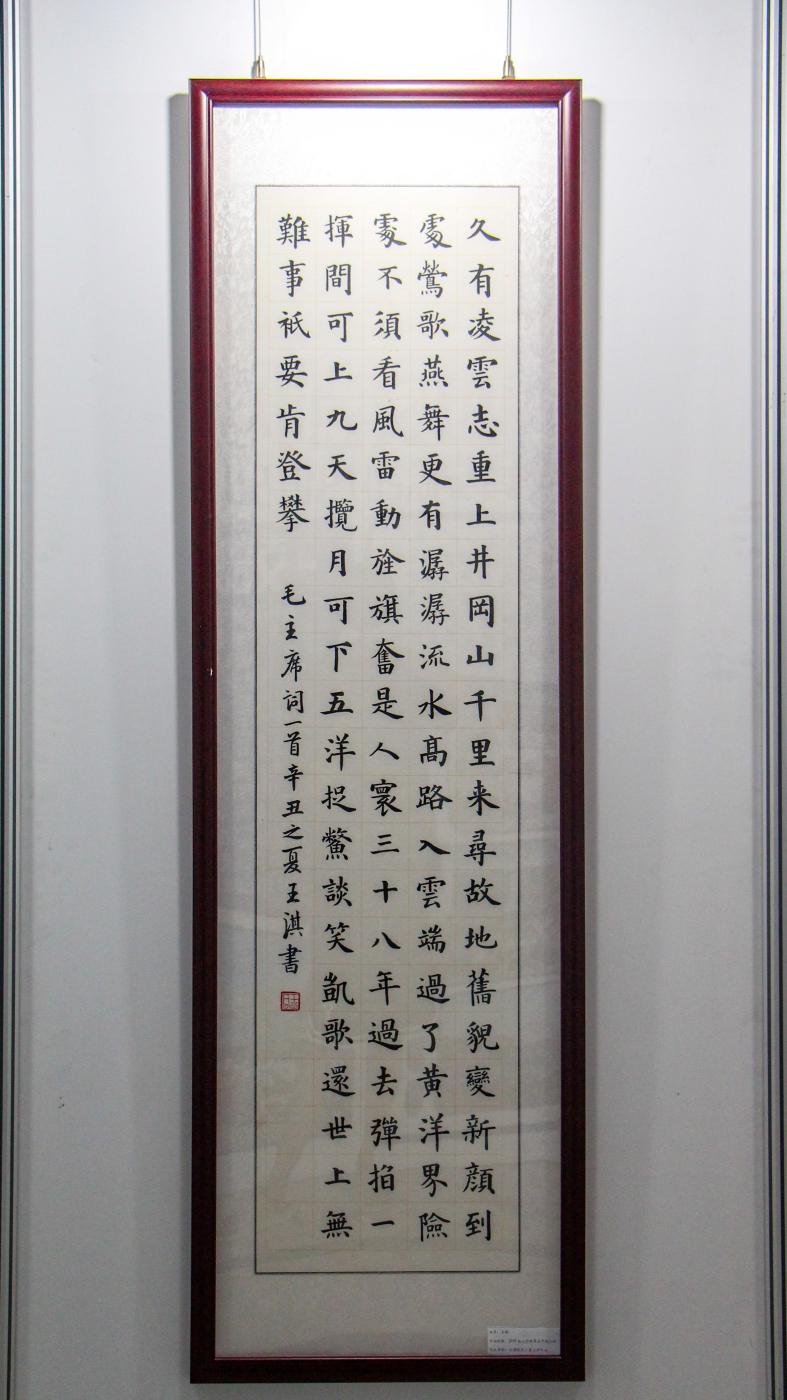 久有凌雲志重上井岡山千里来尋故地舊貌變新顔到
處鶯歌燕舞更有潺潺流水高路入雲端過了黄洋界險
處不須看風雷動旌旗奮是人寰三十八年過去彈指一
揮間可上九天攬月可下五洋捉鱉談笑凱歌還世上無
難事衹要肯登攀
毛主席詞一首辛丑之夏王淇書